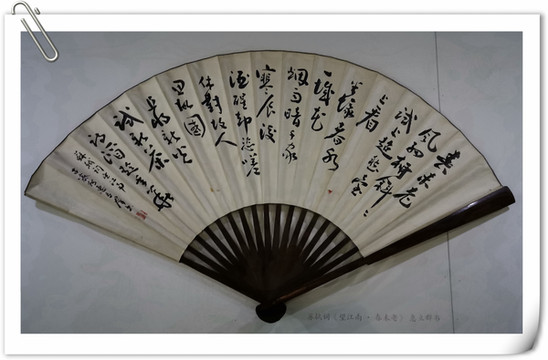 春未老
风细柳斜〻
试上超然台
上看
半壕春水
一城花
烟雨暗千家
寒食后
酒醒却咨嗟
休对故人
思故国
且将新火
试新茶
诗酒趁年华
苏轼词《望江南·春未老》